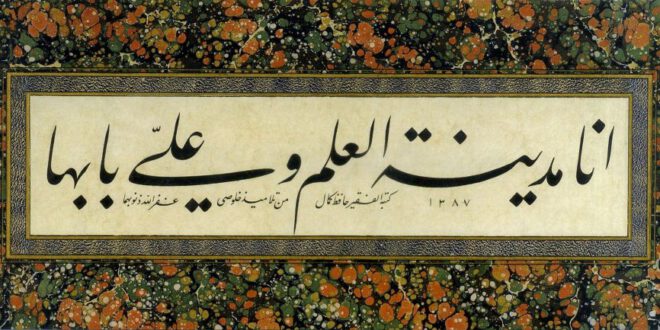 انا مدينة العلم و عليّ بابها
١٣٨٧ كتبه الفقير حافظ كمال من تلاميذ خلوصى غفر الله ذنوبهما